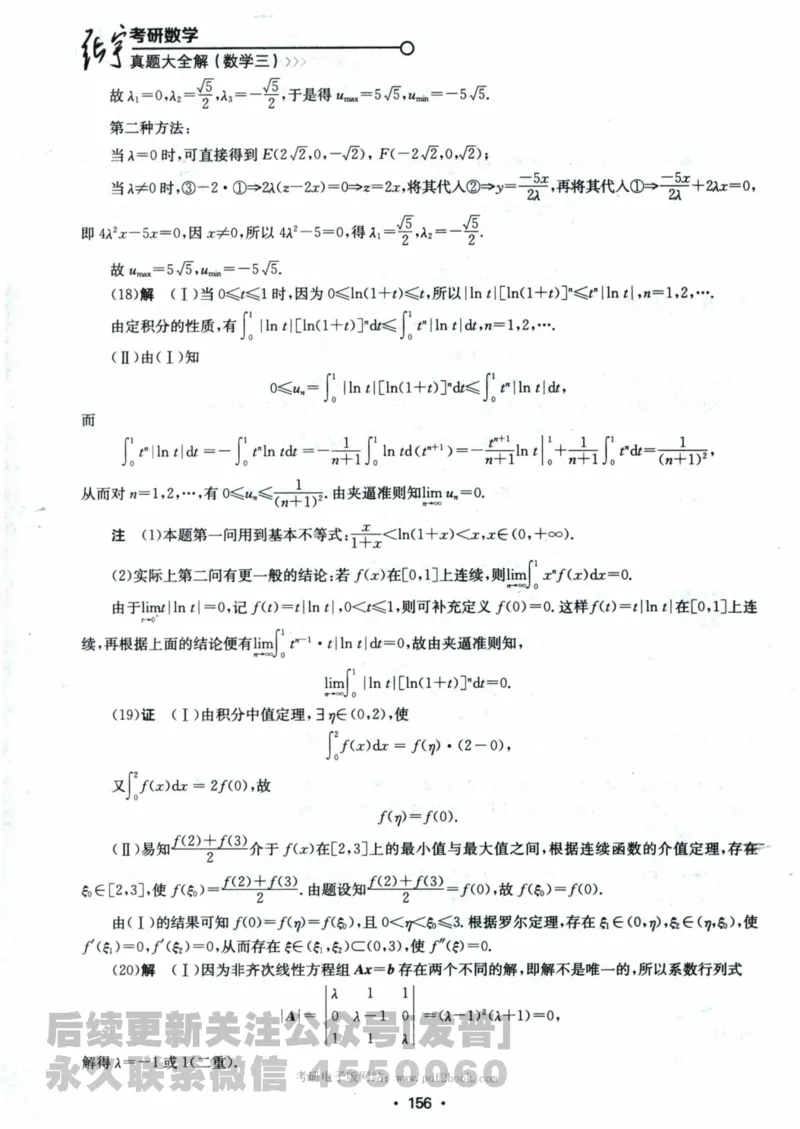 张宇考研数学
真题大全解(数学三)〉〉〉
故 λ₁=0,λ₂=√5/2,λ₃=-√5/2,于是得 u_max=5√5,u_min=-5√5.
第二种方法:
当 λ=0 时,可直接得到 E(2√2,0,-√2), F(-2√2,0,√2);
当 λ≠0 时,③-2·①⇒2λ(z-2x)=0⇒z=2x,将其代入②⇒y=-5x/2λ,再将其代入①⇒-5x/2λ+2λx=0,
即 4λ²x-5x=0,因 x≠0,所以 4λ²-5=0,得 λ₁=√5/2,λ₂=-√5/2.
故 u_max=5√5,u_min=-5√5.
(18)解 (Ⅰ)当 0≤t≤1 时,因为 0≤ln(1+t)≤t,所以|ln t|[ln(1+t)]ⁿ≤tⁿ|ln t|,n=1,2,⋯.
由定积分的性质,有∫₀¹|ln t|[ln(1+t)]ⁿdt≤∫₀¹tⁿ|ln t|dt,n=1,2,⋯.
(Ⅱ)由(Ⅰ)知
0≤uₙ=∫₀¹|ln t|[ln(1+t)]ⁿdt≤∫₀¹tⁿ|ln t|dt,
而
∫₀¹tⁿ|ln t|dt=-∫₀¹tⁿln tdt=-1/(n+1)∫₀¹ln td(tⁿ⁺¹)=-tⁿ⁺¹/(n+1)ln t|₀¹+1/(n+1)∫₀¹tⁿdt=1/(n+1)²,
从而对 n=1,2,⋯,有 0≤uₙ≤1/(n+1)².由夹逼准则知lim_{n→∞}uₙ=0.
注 (1)本题第一问用到基本不等式:x/(1+x)<ln(1+x)<x,x∈(0,+∞).
(2)实际上第二问有更一般的结论:若 f(x)在[0,1]上连续,则lim_{n→∞}∫₀¹xⁿf(x)dx=0.
由于lim_{t→0⁺}t|ln t|=0,记 f(t)=t|ln t|,0<t≤1,则可补充定义 f(0)=0.这样f(t)=t|ln t|在[0,1]上连
续,再根据上面的结论便有lim_{n→∞}∫₀¹tⁿ⁻¹·t|ln t|dt=0,故由夹逼准则知,
lim_{n→∞}∫₀¹|ln t|[ln(1+t)]ⁿdt=0.
(19)证 (Ⅰ)由积分中值定理,∃η∈(0,2),使
∫₀²f(x)dx=f(η)·(2-0),
又∫₀²f(x)dx=2f(0),故
f(η)=f(0).
(Ⅱ)易知[f(2)+f(3)]/2介于 f(x)在[2,3]上的最小值与最大值之间,根据连续函数的介值定理,存在
ξ₀∈[2,3],使 f(ξ₀)=[f(2)+f(3)]/2.由题设知[f(2)+f(3)]/2=f(0),故 f(ξ₀)=f(0).
由(Ⅰ)的结果可知 f(0)=f(η)=f(ξ₀),且 0<η<ξ₀≤3.根据罗尔定理,存在 ξ₁∈(0,η),ξ₂∈(η,ξ₀),使
f′(ξ₁)=0,f′(ξ₂)=0,从而存在 ξ∈(ξ₁,ξ₂)⊂(0,3),使 f″(ξ)=0.
(20)解 (Ⅰ)因为非齐次线性方程组 Ax=b 存在两个不同的解,即解不是唯一的,所以系数行列式
λ 1 1
|A|= 0 λ-1 0 =(λ-1)²(λ+1)=0,
1 1 λ
后续更新关注公众号[发普]
解得 λ=-1 或 1(二重).
永久联系微信 4550060
考研电子版网站:www.pdf2book.com
· 156 ·